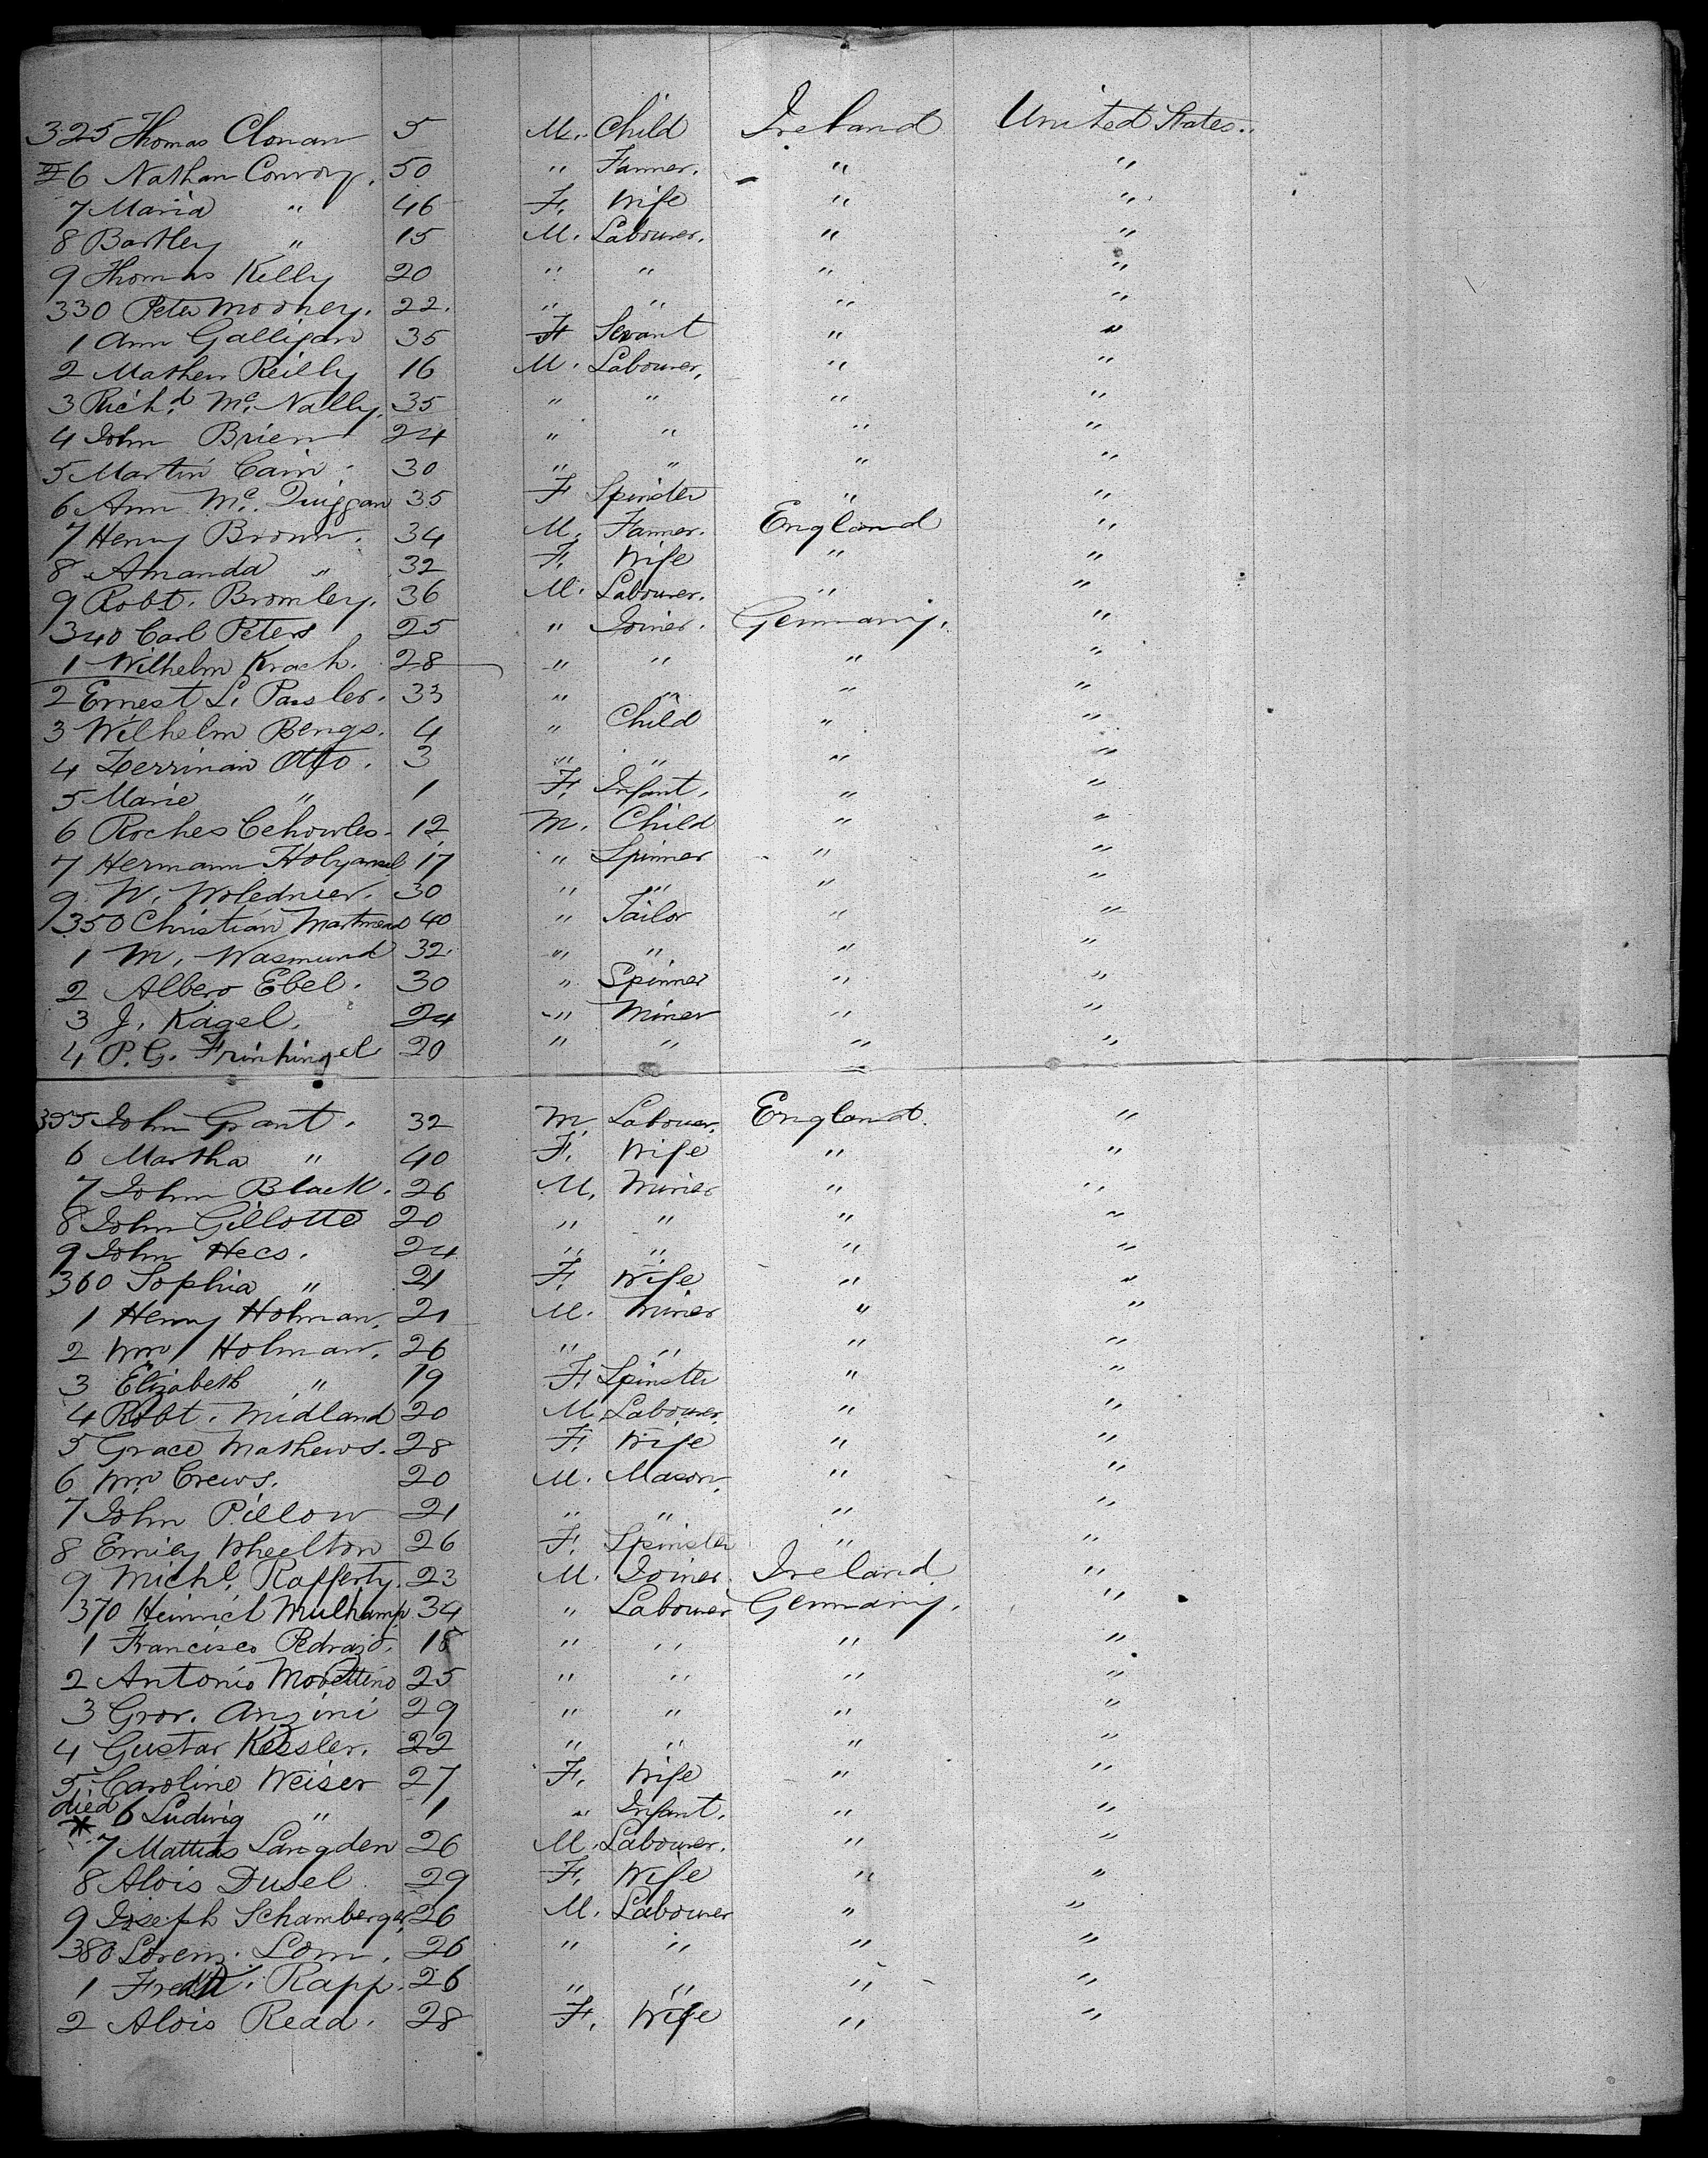 325 Thomas Clonan 5 M. Child Ireland United States.
6 Nathan Conroy. 50 " Farmer. " "
7 Maria " 46 F. Wife " "
8 Bartley " 15 M. Labourer. " "
9 Thomas Kelly 20 " " " "
330 Peter Mooney. 22. " " " "
1 Ann Galligan 35 F Servant " "
2 Mathew Reilly 16 M. Labourer, " "
3 Rich.d Mc. Nally. 35 " " " "
4 John Brien 24 " " " "
5 Martin Cain 30 " " " "
6 Ann Mc. Quiggan 35 F Spinster " "
7 Henry Brown. 34 M. Farmer. England "
8 Amanda " 32 F. Wife " "
9 Robt. Bromley. 36 M. Labourer. " "
340 Carl Peters 25 " Joiner. Germany. "
1 Wilhelm Krach. 28 " " " "
2 Ernest L. Passler. 33 " " " "
3 Wilhelm Bengs. 4 " Child " "
4 Otto. 3 " " " "
5 Marie " 1 F. Infant. " "
6 Roches 12 M. Child " "
7 Hermann 17 " Spinner " "
9 W. Wolednier. 30 " " " "
350 Christian 40 " Tailor " "
1 M. Wasmund 32. " " " "
2 Albero Ebel. 30 " Spinner " "
3 J. Kagel. 24 " Miner " "
4 P. G. 20 " " " "
355 John Grant. 32 M. Labourer. England. "
6 Martha " 40 F. Wife " "
7 John Black. 26 M. Miner " "
8 John Gillotte 20 " " " "
9 John Hecs. 24 " " " "
360 Sophia " 21 F. Wife " "
1 Henry Holman. 21 M. Miner " "
2 Wm Holman. 26 " " " "
3 Elizabeth " 19 F. Spinster " "
4 Robt. Midland 20 M. Labourer. " "
5 Grace Mathews. 28 F. Wife " "
6 Wm. Crews. 20 M. Mason. " "
7 John Pillow 21 " " " "
8 Emily Wheelton 26 F. Spinster " "
9 Michl. Rafferty. 23 M. Joiner. Ireland "
370 Heinrich Mulkamp 34 " Labourer Germany. "
1 Francisco Pedrazo. 18 " " " "
2 Antonio Morettino 25 " " " "
3 Gror. Anzini 29 " " " "
4 Gustav Kessler. 22 " " " "
5 Caroline Weiser 27 F. Wife " "
died * 6 Ludwig " 1 " Infant. " "
7 Mattias Langden 26 M. Labourer. " "
8 Alois Dusel 29 F. Wife " "
9 Joseph Schamberger 26 M. Labourer " "
380 Lorenz Lom. 26 " " " "
1 Rapp. 26 " " " "
2 Alois Read. 28 F. Wife " "